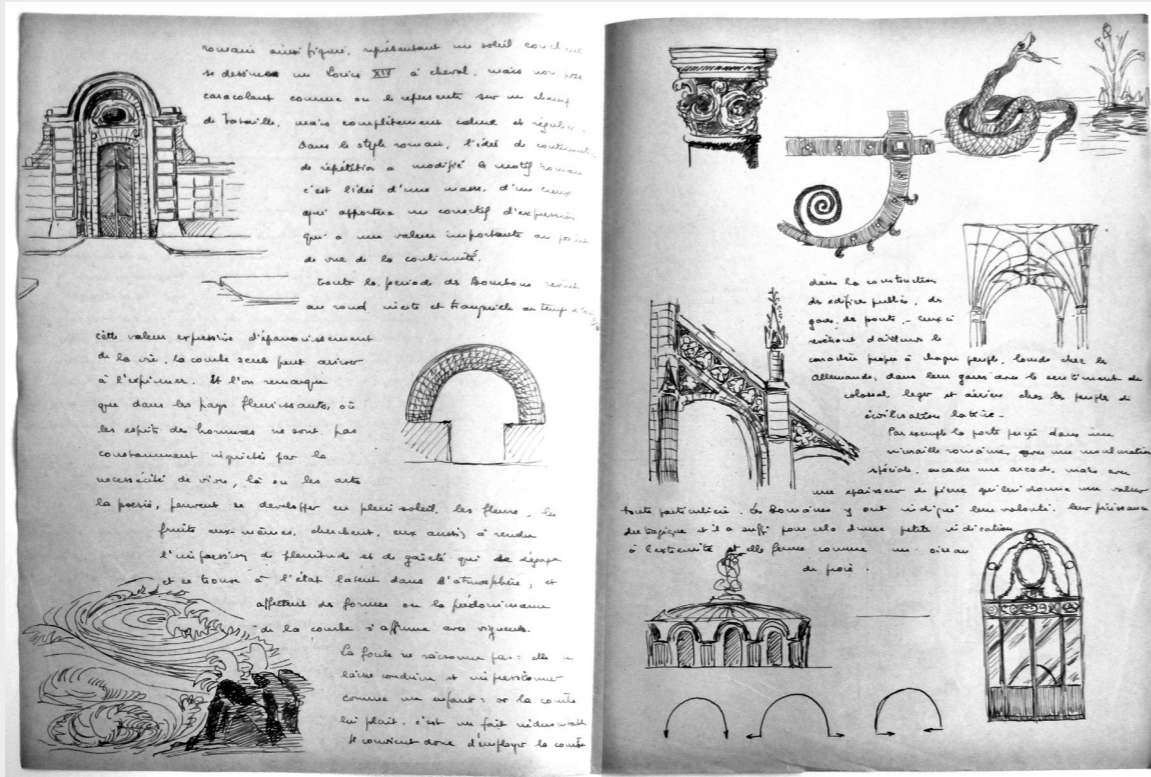 romain ainsi figuré, représentant un soleil
se dessine un Louis XIV à cheval, mais non pas
caracolant comme on le représente sur un champ
de bataille, mais complètement calme et régulier.
Dans le style roman, l'idée de continuité,
de répétition a modifié le motif romain
c'est l'idée d'une masse, d'un creux
qui apportera un correctif d'expression
qui a une valeur importante au point
de vue de la continuité.
toute la période des Bourbons revient
au rond et tranquille au temps
cette valeur expressive d'épanouissement
de la vie, la courbe seule peut arriver
à l'exprimer. Et l'on remarque
que dans les pays fleurissants, où
les esprits des hommes ne sont pas
constamment inquiétés par la
nécessité de vivre, là où les arts
la poésie, peuvent se développer en plein soleil, les fleurs, les
fruits eux-mêmes, cherchent, eux aussi, à rendre
l'impression de plénitude et de gaieté qui se dégage
et se trouve à l'état latent dans l'atmosphère, et
affectent des formes où la prédominance
de la courbe s'affirme avec vigueur.
La foule ne raisonne pas : elle se
laisse conduire et impressionner
comme un enfant : or la courbe
lui plait. c'est un fait indiscutable
Il convient donc d'employer la courbe
dans la construction
des édifices publics, des
gares, des ponts, - ceux ci
revêtent d'ailleurs le
caractère propre à chaque peuple, lourde chez les
Allemands, dans leur gares avec le sentiment de
colossal, leger et aérien chez les peuples de
civilisation latine -
Par exemple la porte percée dans une
muraille romaine, avec une
spéciale, encadre une arcade, mais avec
une épaisseur de pierre qui lui donne une valeur
toute particulière. Les Romains y ont indiqué leur volonté, leur puissance
et il a suffi pour cela d'une petite indication
à l'extrémité et elle ferme comme un oiseau